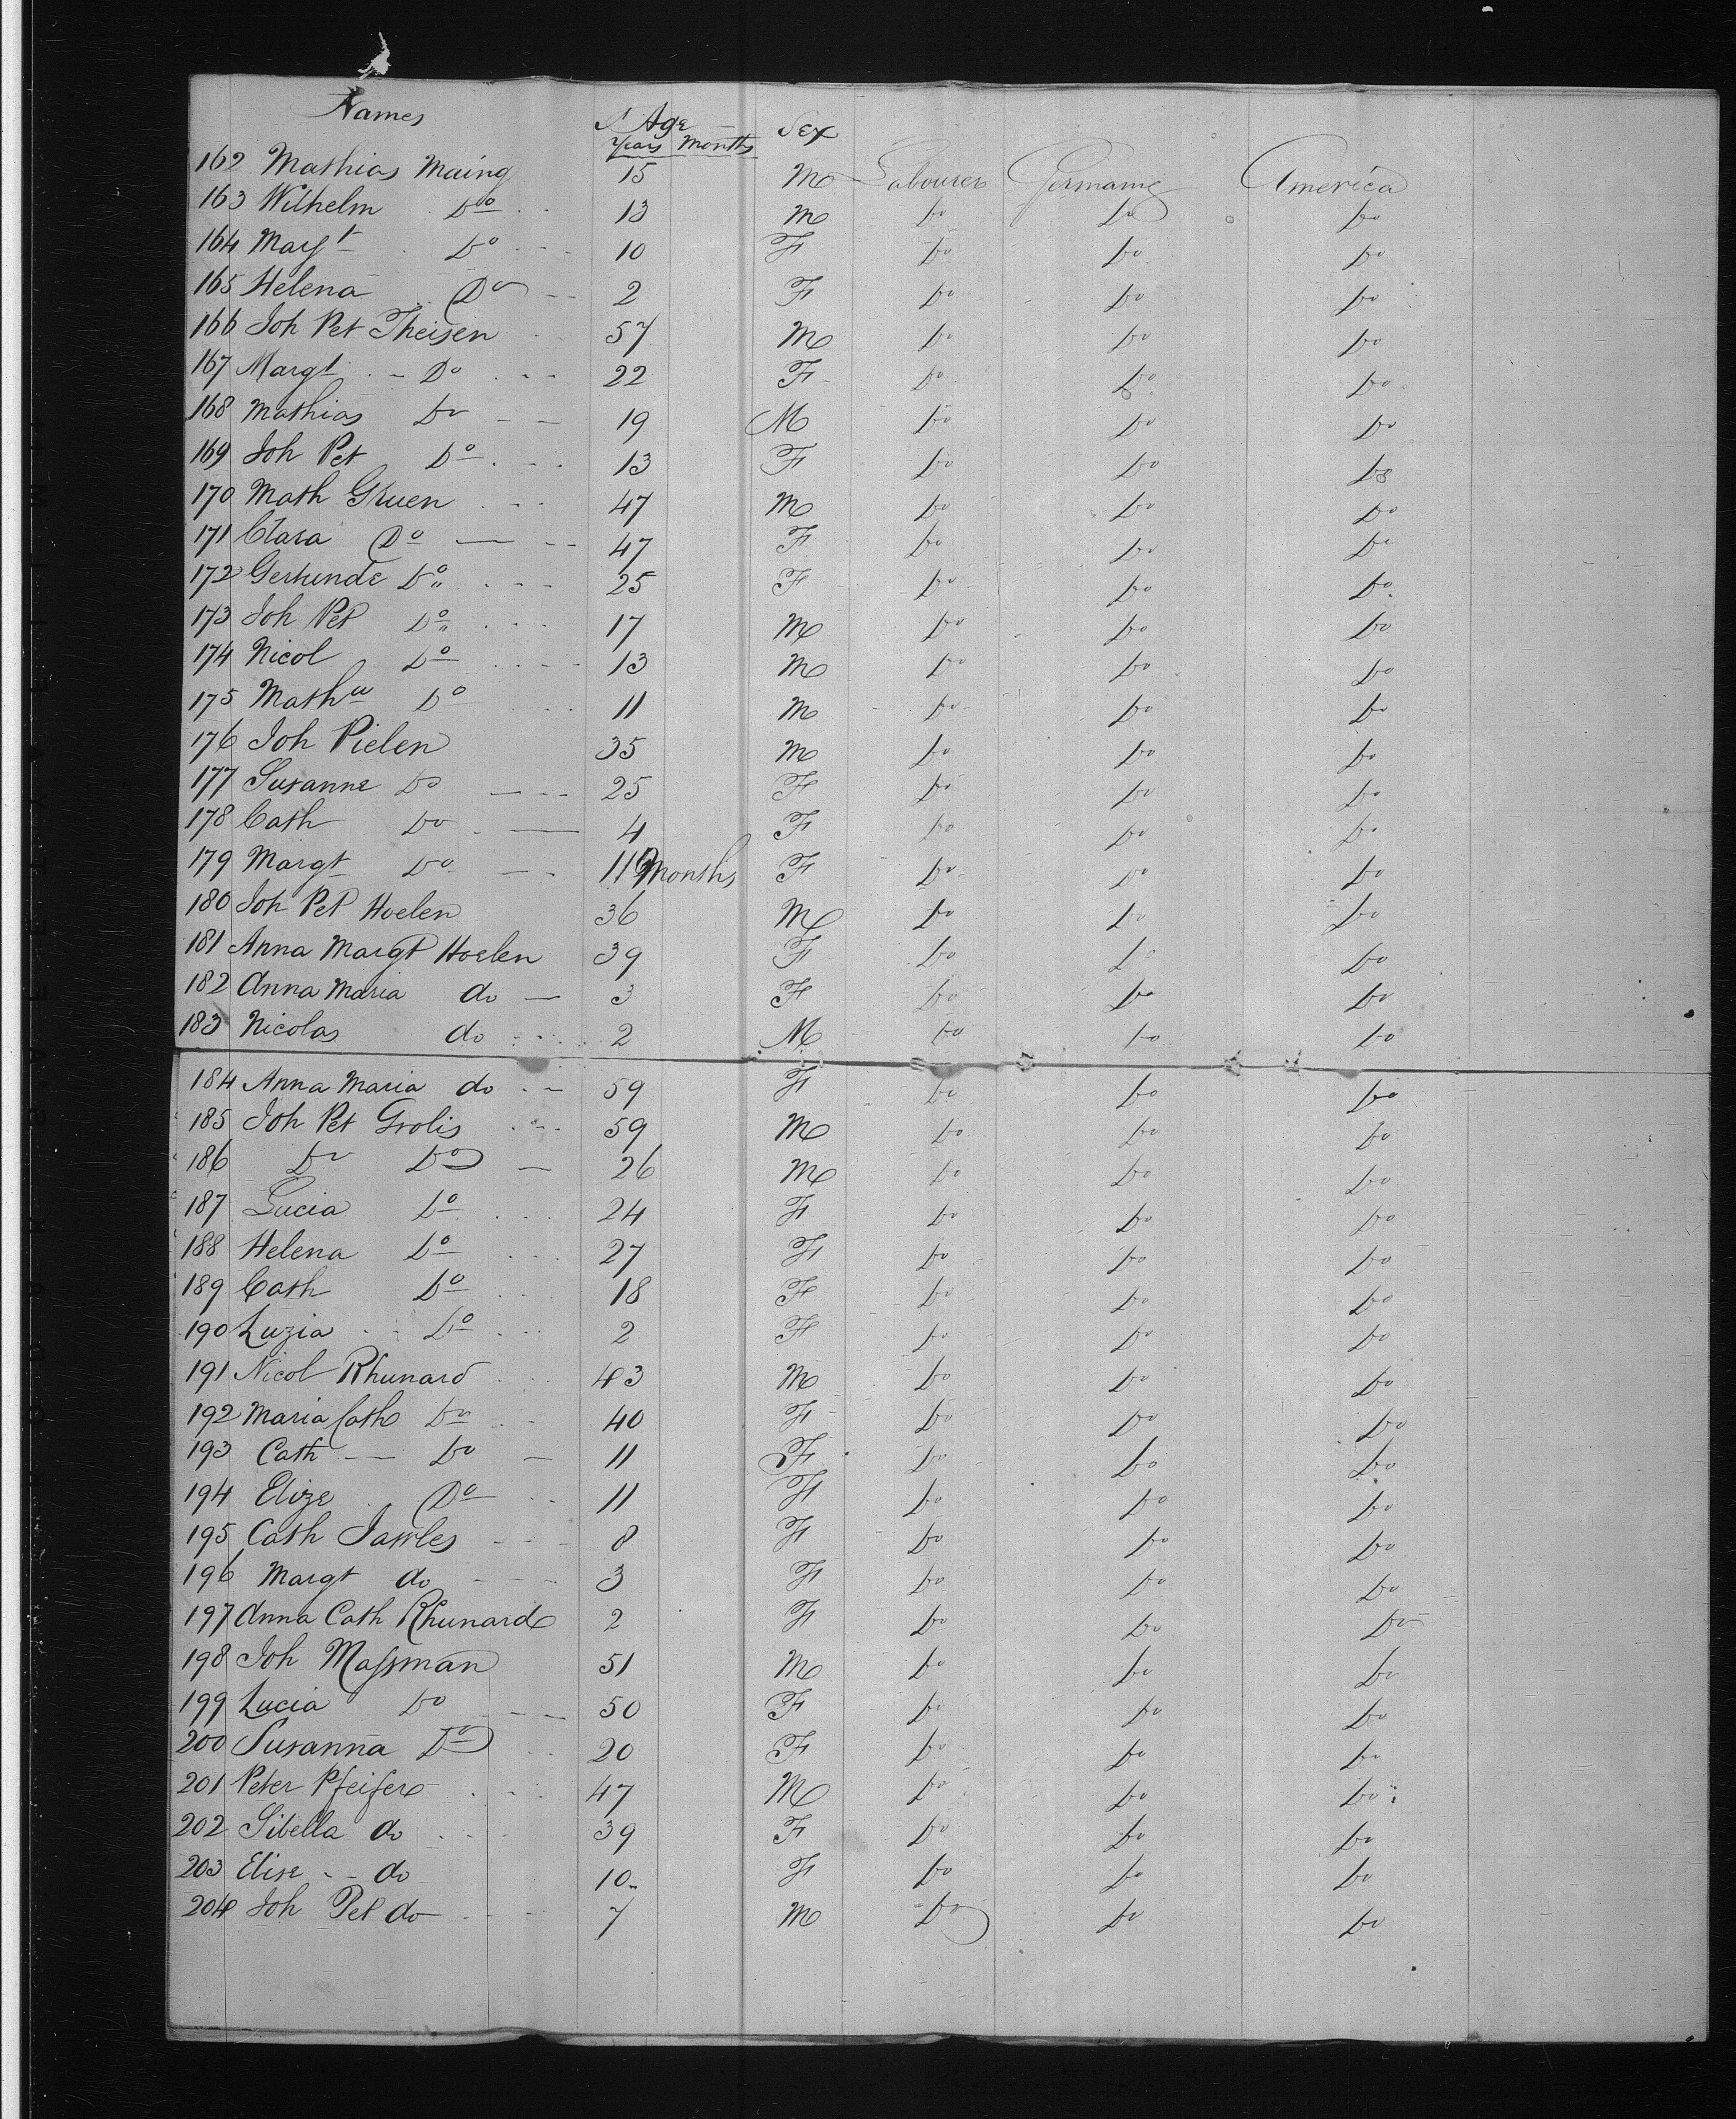 Names Age Sex
Years Months
162 Mathias Maing 15 M Labourer Germany America
163 Wilhelm Do 13 M Do Do Do
164 Margt Do 10 F Do Do Do
165 Helena Do 2 F Do Do Do
166 Joh Pet Theisen 57 M Do Do Do
167 Margt Do 22 F Do Do Do
168 Mathias Do 19 M Do Do Do
169 Joh Pet Do 13 F Do Do Do
170 Math Gruen 47 M Do Do Do
171 Clara Do 47 F Do Do Do
172 Gertunde Do 25 F Do Do Do
173 Joh Pet Do 17 M Do Do Do
174 Nicol Do 13 M Do Do Do
175 Math Do 11 M Do Do Do
176 Joh Pielen 35 M Do Do Do
177 Susanne Do 25 F Do Do Do
178 Cath Do 4 F Do Do Do
179 Margt Do 11 Months F Do Do Do
180 Joh Pet Hoelen 36 M Do Do Do
181 Anna Margt Hoelen 39 F Do Do Do
182 Anna Maria do 3 F Do Do Do
183 Nicolas do 2 M Do Do Do
184 Anna Maria do 59 F Do Do Do
185 Joh Pet Grolis 59 M Do Do Do
186 Do Do 26 M Do Do Do
187 Lucia Do 24 F Do Do Do
188 Helena Do 27 F Do Do Do
189 Cath Do 18 F Do Do Do
190 Luzia Do 2 F Do Do Do
191 Nicol Rhunard 43 M Do Do Do
192 Maria Cath Do 40 F Do Do Do
193 Cath Do 11 F Do Do Do
194 Elize Do 11 F Do Do Do
195 Cath 8 F Do Do Do
196 Margt do 3 F Do Do Do
197 Anna Cath Rhunard 2 F Do Do Do
198 Joh Massman 51 M Do Do Do
199 Lucia Do 50 F Do Do Do
200 Susanna Do 20 F Do Do Do
201 Peter Pfeifer 47 M Do Do Do
202 Sibella do 39 F Do Do Do
203 Elise do 10 F Do Do Do
204 Joh Pet do 7 M Do Do Do